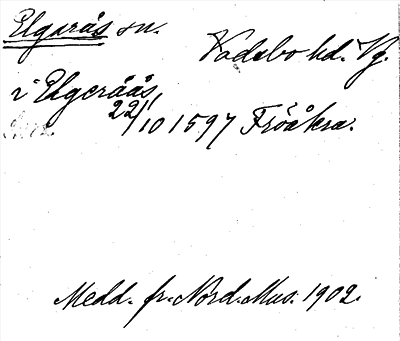 Elgarås sn.
Vadsbo hd. Vg.
i Elgeråås,
22/10 1597 Fröåkra.
Medd. fr. Nord. Mus. 1902.